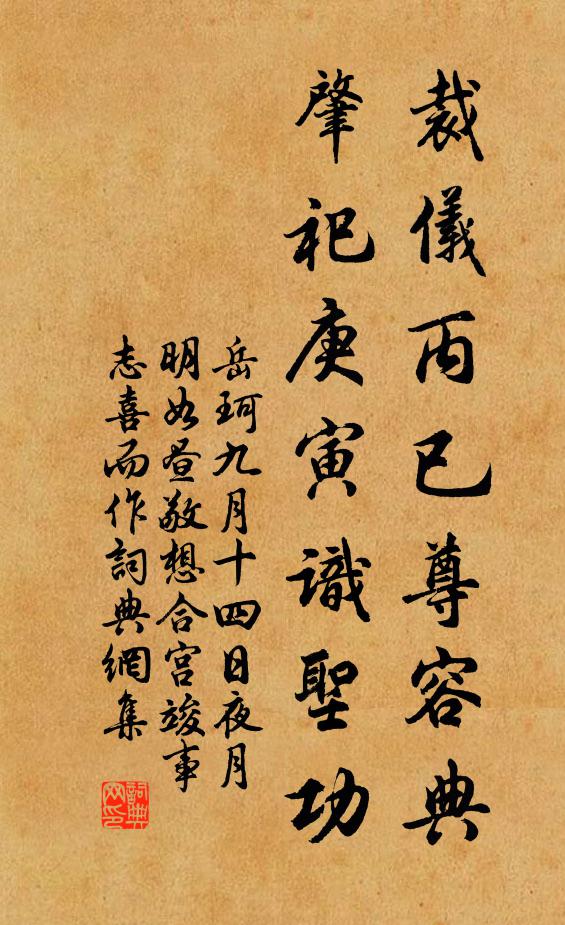 裁儀丙已尊容典
肇祀庚寅識聖功
岳珂九月十四日夜月
明如昼敬想合宫竣事
志喜而作詞典網集
詞典网印